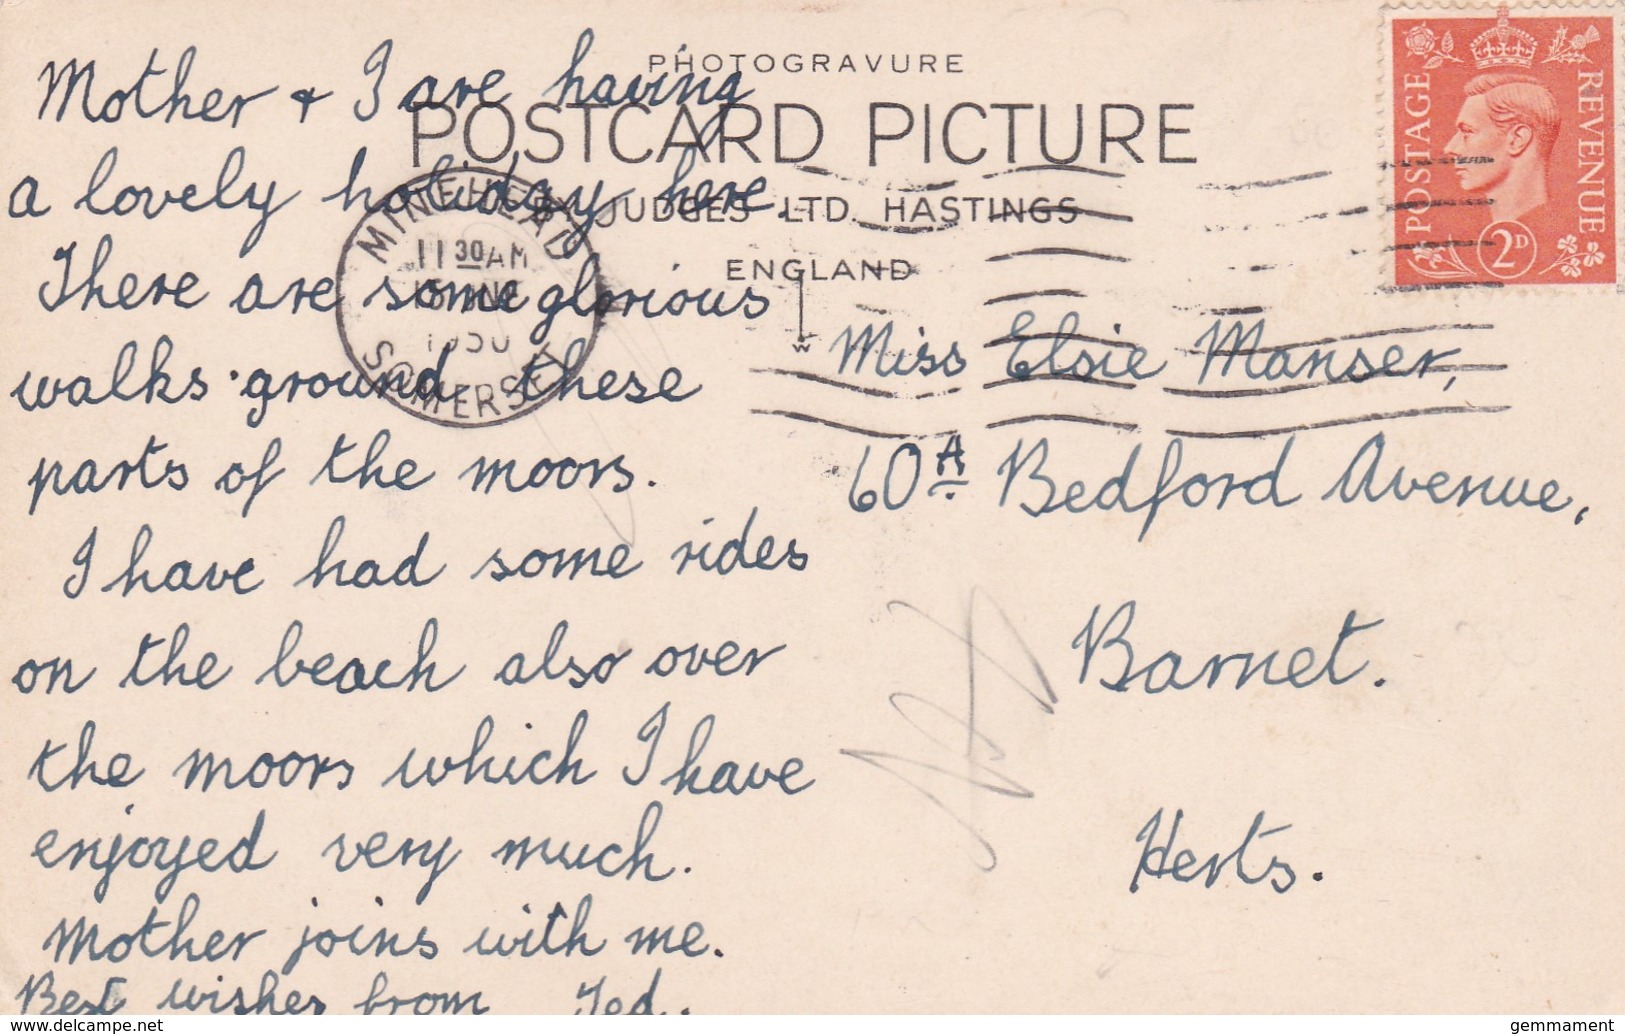 PHOTOGRAVURE
POSTCARD PICTURE
BY JUDGES LTD. HASTINGS
ENGLAND
W
POSTAGE
REVENUE
2D
MINEHEAD
11 30 AM
1950
SOMERSET
Mother + I are having
a lovely holiday here.
There are some glorious
walks ground these
parts of the moors.
I have had some rides
on the beach also over
the moors which I have
enjoyed very much.
Mother joins with me.
Best wishes from Ted.
Miss Elsie Manser,
60A Bedford Avenue,
Barnet.
Herts.
gemmament